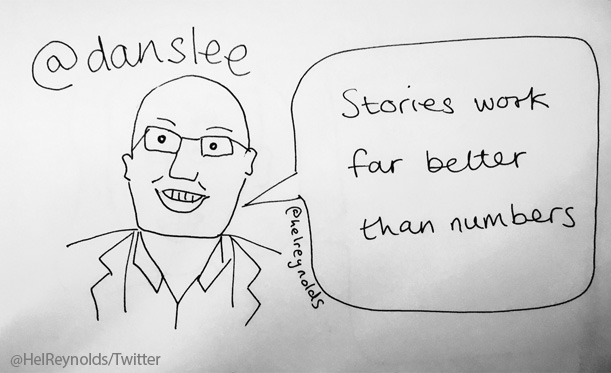 @danslee
Stories work
far better
than numbers
@helreynolds
@HelReynolds/Twitter